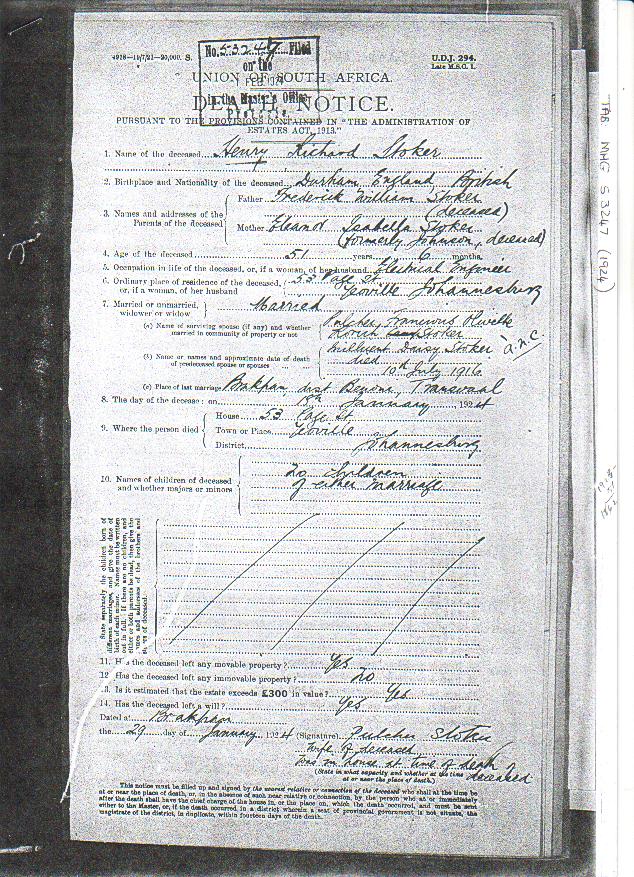 4928—19/7/21—20,000. S.
No. 53247 Filed
on the
FEB 1924
in the Master's Office
Pretoria
U.D.J. 294.
Late M.S.C. 1.
UNION OF SOUTH AFRICA.
DEATH NOTICE.
PURSUANT TO THE PROVISIONS CONTAINED IN "THE ADMINISTRATION OF
ESTATES ACT, 1913."
1. Name of the deceased Henry Richard Stoker
2. Birthplace and Nationality of the deceased Durham England, British
3. Names and addresses of the Parents of the deceased
Father Frederick William Stoker
(deceased)
Mother Isabella Stoker
(formerly Johnson, deceased)
4. Age of the deceased 51 years 6 months
5. Occupation in life of the deceased, or, if a woman, of her husband Electrical Engineer
6. Ordinary place of residence of the deceased, or, if a woman, of her husband
53 Page St
Yeoville Johannesburg
7. Married or unmarried, widower or widow Married
(a) Name of surviving spouse (if any) and whether married in community of property or not
Pulcher
Stoker
a.n.c
(b) Name or names and approximate date of death of predeceased spouse or spouses
Millicent Daisy Stoker
died
10th July 1916
(c) Place of last marriage Brakpan, dist Benoni, Transvaal
8. The day of the decease: on 18th January 1924
9. Where the person died
House 53 Page St
Town or Place Yeoville
District Johannesburg
10. Names of children of deceased and whether majors or minors
no children
of either marriage
State separately the children born of
different marriages, and give the date of
birth of each minor. Names must be written
out in full. If there are no children, and
either or both parents be dead, then give the
names and addresses of the brothers and
sisters of deceased.
11. Has the deceased left any movable property? Yes
12. Has the deceased left any immovable property? no
13. Is it estimated that the estate exceeds £300 in value? Yes
14. Has the deceased left a will? Yes
Dated at Brakpan
the 29 day of January 1924 (Signature) Pulcher Stoker
Wife of deceased
was in house at time of death
(State in what capacity and whether at the time
deceased
or near the place of death.)
This notice must be filled up and signed by the nearest relative or connection of the deceased who shall at the time be
at or near the place of death, or, in the absence of such near relative or connection, by the person who at or immediately
after the death shall have the chief charge of the house in, or the place on, which the death occurred, and must be sent
either to the Master, or, if the death occurred in a district wherein a seat of provincial government is not situate, the
magistrate of the district, in duplicate, within fourteen days of the death.
TAB MHG 53247 (1924)